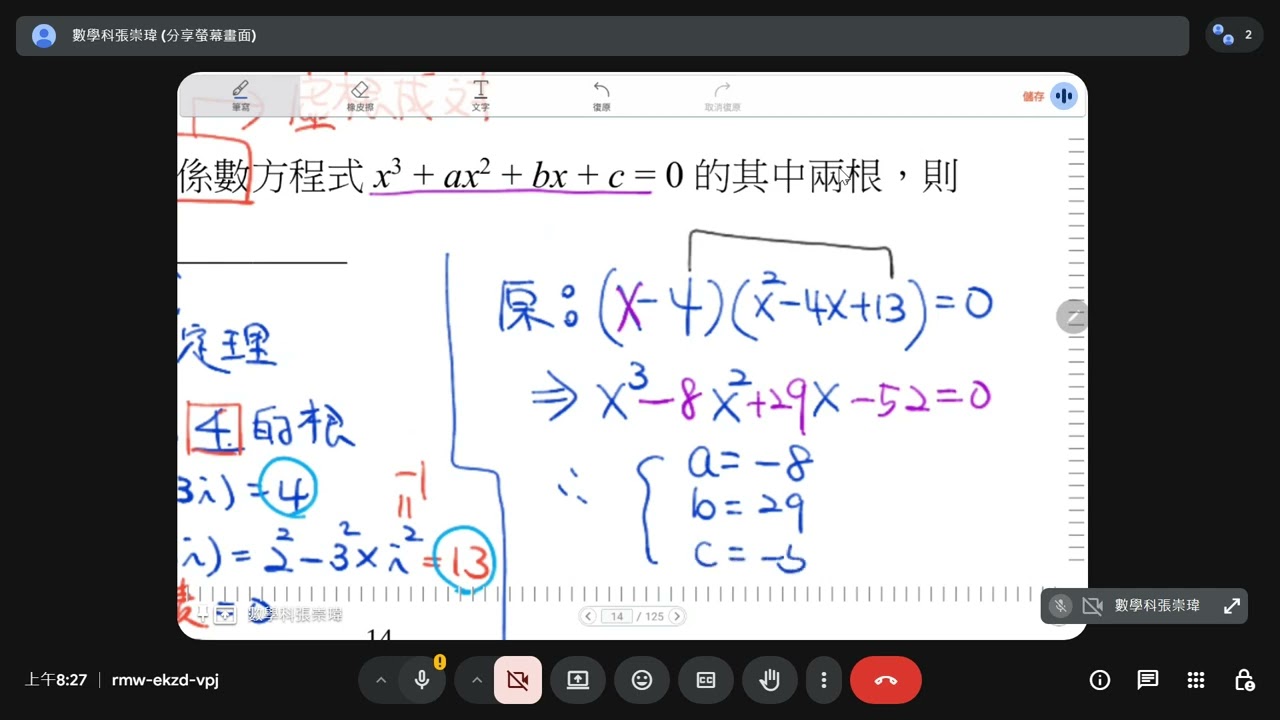 數學科張崇瑋 (分享螢幕畫面)
2
→ 虛根成對
筆寫
橡皮擦
文字
復原
取消復原
儲存
係數方程式 x³ + ax² + bx + c = 0 的其中兩根，則
定理
4 的根
3i) = 4
-1
=
i) = 2² - 3² × i² = 13
原：(x - 4)(x² - 4x + 13) = 0
⇒ x³ - 8x² + 29x - 52 = 0
∴ { a = -8
b = 29
c = -5
數學科張崇瑋
14 / 125
14
數學科張崇瑋
上午8:27 | rmw-ekzd-vpj